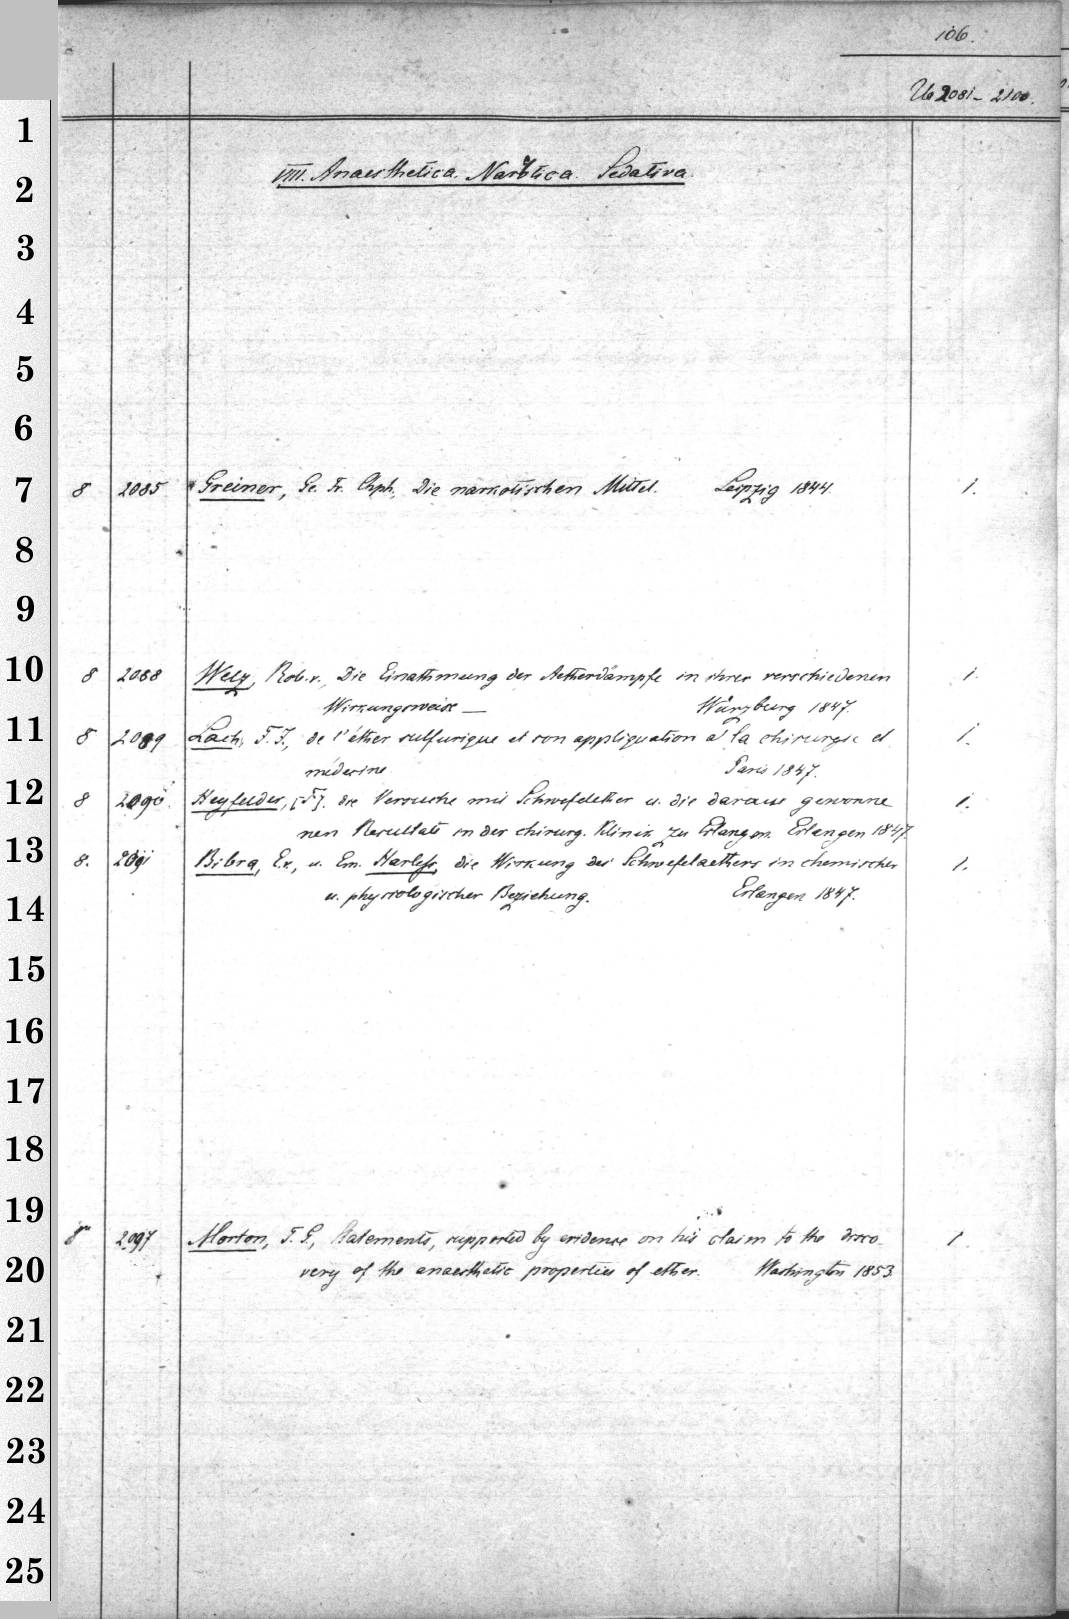 106.
Ub 2081 - 2100.
1
VIII. Anaesthetica. Narcotica. Sedativa.
2
3
4
5
6
7 8 2085 Greiner, Ge. Fr. Chph., Die narkotischen Mittel. Leipzig 1844. 1.
8
9
10 8 2088 Welz, Rob. v., Die Einathmung der Aetherdämpfe in ihrer verschiedenen 1.
Wirkungsweise — Würzburg 1847.
11 8 2089 Lach, F. J., de l'éther sulfurique et son appliquation a la chirurgie et 1.
médecine Paris 1847.
12 8 2090. Heyfelder, [F]. die Versuche mit Schwefelether u. die daraus gewonne 1.
nen Resultate in der chirurg. Klinik zu Erlangen. Erlangen 1847.
13 8. 2091 Bibra, Ex., u. Em. Harless, die Wirkung des Schwefelaethers in chemischer 1.
14 u. physiologischer Beziehung. Erlangen 1847.
15
16
17
18
19 8 2097 Morton, T. G., Statements, supported by evidence on his claim to the disco- 1
20 very of the anaesthetic properties of ether. Washington 1853.
21
22
23
24
25